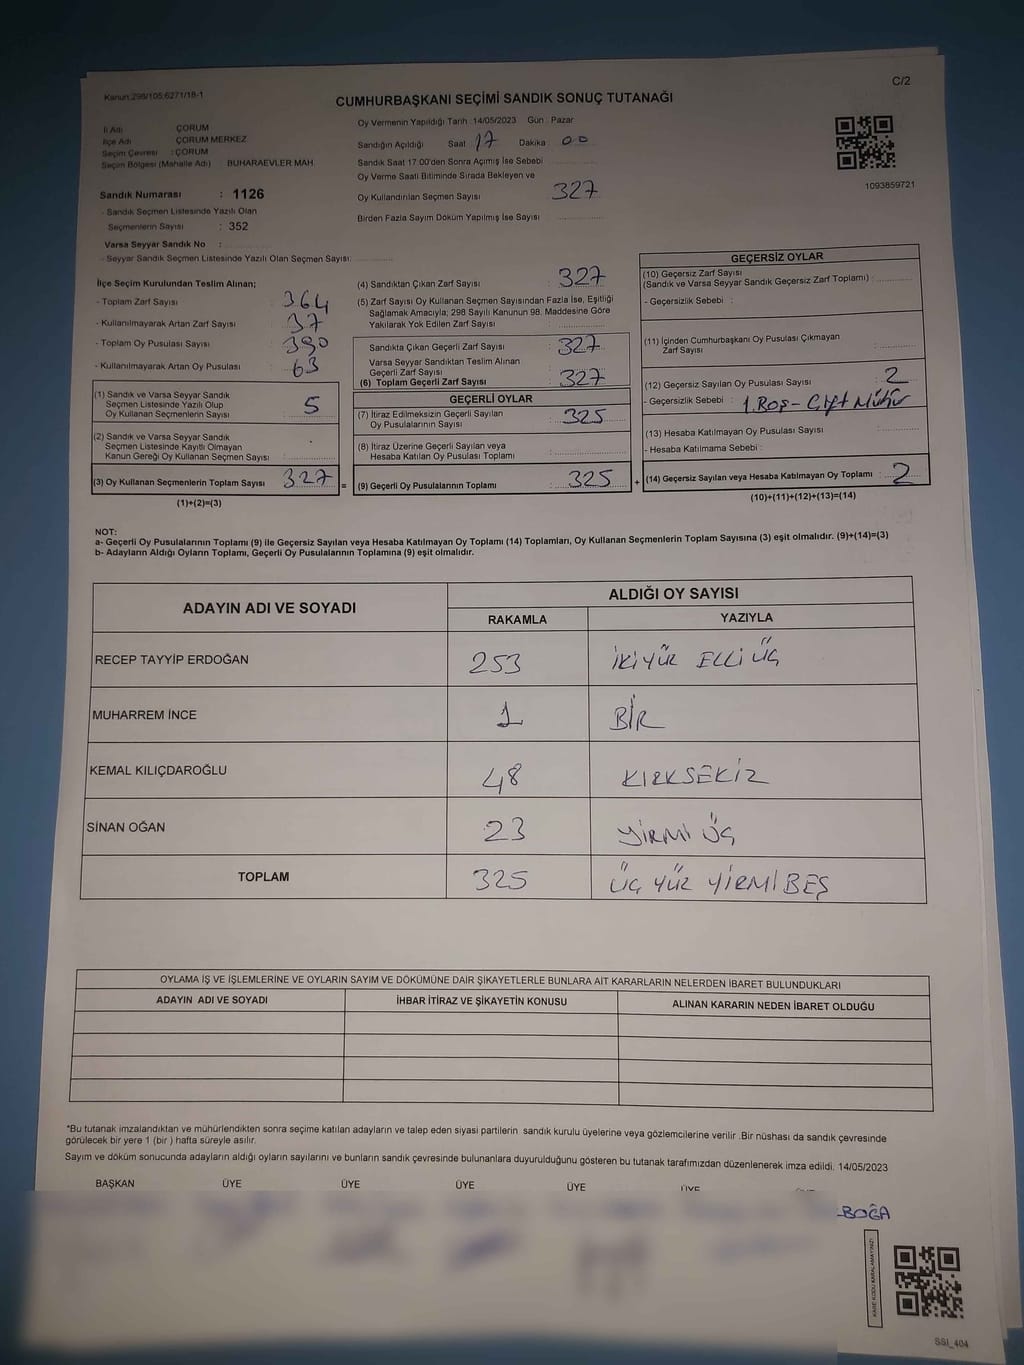 C/2
Kanun:298/105;6271/18-1
CUMHURBAŞKANI SEÇİMİ SANDIK SONUÇ TUTANAĞI
İl Adı ÇORUM
İlçe Adı ÇORUM MERKEZ
Seçim Çevresi : ÇORUM
Seçim Bölgesi (Mahalle Adı) BUHARAEVLER MAH.
Sandık Numarası : 1126
- Sandık Seçmen Listesinde Yazılı Olan
Seçmenlerin Sayısı : 352
Varsa Seyyar Sandık No :
- Seyyar Sandık Seçmen Listesinde Yazılı Olan Seçmen Sayısı:
Oy Vermenin Yapıldığı Tarih : 14/05/2023 Gün : Pazar
Sandığın Açıldığı Saat 17 Dakika 00
Sandık Saat 17:00'den Sonra Açımış İse Sebebi
Oy Verme Saati Bitiminde Sırada Bekleyen ve
Oy Kullandırılan Seçmen Sayısı 327
Birden Fazla Sayım Döküm Yapılmış İse Sayısı :
1093859721
İlçe Seçim Kurulundan Teslim Alınan;
- Toplam Zarf Sayısı : 364
- Kullanılmayarak Artan Zarf Sayısı : 37
- Toplam Oy Pusulası Sayısı : 390
- Kullanılmayarak Artan Oy Pusulası : 63
(1) Sandık ve Varsa Seyyar Sandık
Seçmen Listesinde Yazılı Olup
Oy Kullanan Seçmenlerin Sayısı : 5
(2) Sandık ve Varsa Seyyar Sandık
Seçmen Listesinde Kayıtlı Olmayan
Kanun Gereği Oy Kullanan Seçmen Sayısı :
(3) Oy Kullanan Seçmenlerin Toplam Sayısı : 327
(1)+(2)=(3)
=
(4) Sandıktan Çıkan Zarf Sayısı : 327
(5) Zarf Sayısı Oy Kullanan Seçmen Sayısından Fazla İse, Eşitliği
Sağlamak Amacıyla; 298 Sayılı Kanunun 98. Maddesine Göre
Yakılarak Yok Edilen Zarf Sayısı :
Sandıkta Çıkan Geçerli Zarf Sayısı : 327
Varsa Seyyar Sandıktan Teslim Alınan
Geçerli Zarf Sayısı :
(6) Toplam Geçerli Zarf Sayısı : 327
GEÇERLİ OYLAR
(7) İtiraz Edilmeksizin Geçerli Sayılan
Oy Pusulasının Sayısı : 325
(8) İtiraz Üzerine Geçerli Sayılan veya
Hesaba Katılan Oy Pusulası Toplamı :
(9) Geçerli Oy Pusulalarının Toplamı : 325
+
GEÇERSİZ OYLAR
(10) Geçersiz Zarf Sayısı
(Sandık ve Varsa Seyyar Sandık Geçersiz Zarf Toplamı) :
- Geçersizlik Sebebi :
(11) İçinden Cumhurbaşkanı Oy Pusulası Çıkmayan
Zarf Sayısı :
(12) Geçersiz Sayılan Oy Pusulası Sayısı : 2
- Geçersizlik Sebebi : 1.Boş - Çift Mühür
(13) Hesaba Katılmayan Oy Pusulası Sayısı :
- Hesaba Katılmama Sebebi :
(14) Geçersiz Sayılan veya Hesaba Katılmayan Oy Toplamı : 2
(10)+(11)+(12)+(13)=(14)
NOT:
a- Geçerli Oy Pusulalarının Toplamı (9) ile Geçersiz Sayılan veya Hesaba Katılmayan Oy Toplamı (14) Toplamları, Oy Kullanan Seçmenlerin Toplam Sayısına (3) eşit olmalıdır. (9)+(14)=(3)
b- Adayların Aldığı Oyların Toplamı, Geçerli Oy Pusulalarının Toplamına (9) eşit olmalıdır.
ADAYIN ADI VE SOYADI
ALDIĞI OY SAYISI
RAKAMLA YAZIYLA
RECEP TAYYİP ERDOĞAN 253 İKİYÜZ ELLİ ÜÇ
MUHARREM İNCE 1 BİR
KEMAL KILIÇDAROĞLU 48 KIRKSEKİZ
SİNAN OĞAN 23 YİRMİ ÜÇ
TOPLAM 325 ÜÇ YÜZ YİRMİ BEŞ
OYLAMA İŞ VE İŞLEMLERİNE VE OYLARIN SAYIM VE DÖKÜMÜNE DAİR ŞİKAYETLERLE BUNLARA AİT KARARLARIN NELERDEN İBARET BULUNDUKLARI
ADAYIN ADI VE SOYADI İHBAR İTİRAZ VE ŞİKAYETİN KONUSU ALINAN KARARIN NEDEN İBARET OLDUĞU
*Bu tutanak imzalandıktan ve mühürlendikten sonra seçime katılan adayların ve talep eden siyasi partilerin sandık kurulu üyelerine veya gözlemcilerine verilir .Bir nüshası da sandık çevresinde
görülecek bir yere 1 (bir ) hafta süreyle asılır.
Sayım ve döküm sonucunda adayların aldığı oyların sayılarını ve bunların sandık çevresinde bulunanlara duyurulduğunu gösteren bu tutanak tarafımızdan düzenlenerek imza edildi. 14/05/2023
BAŞKAN ÜYE ÜYE ÜYE ÜYE ÜYE
BOĞA
KARE KODU KARALAMAYINIZ!
SSI_404